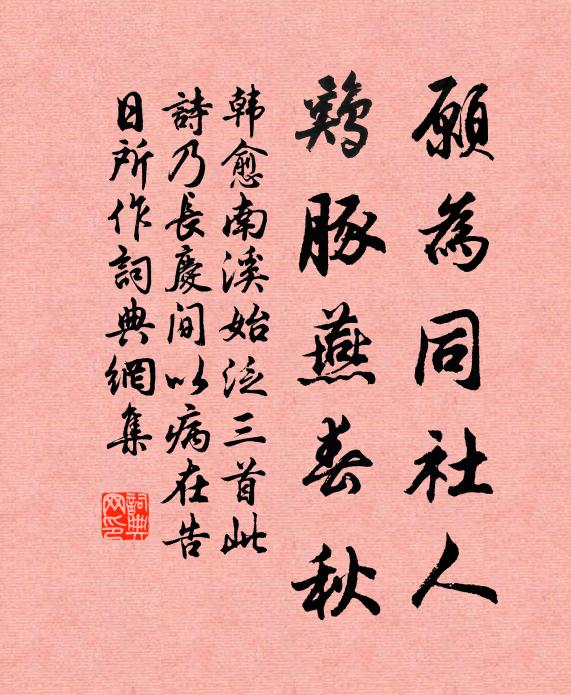 願為同社人
鷄豚燕春秋
韩愈南溪始泛三首此
詩乃長慶间以病在告
日所作詞典網集
詞典网印